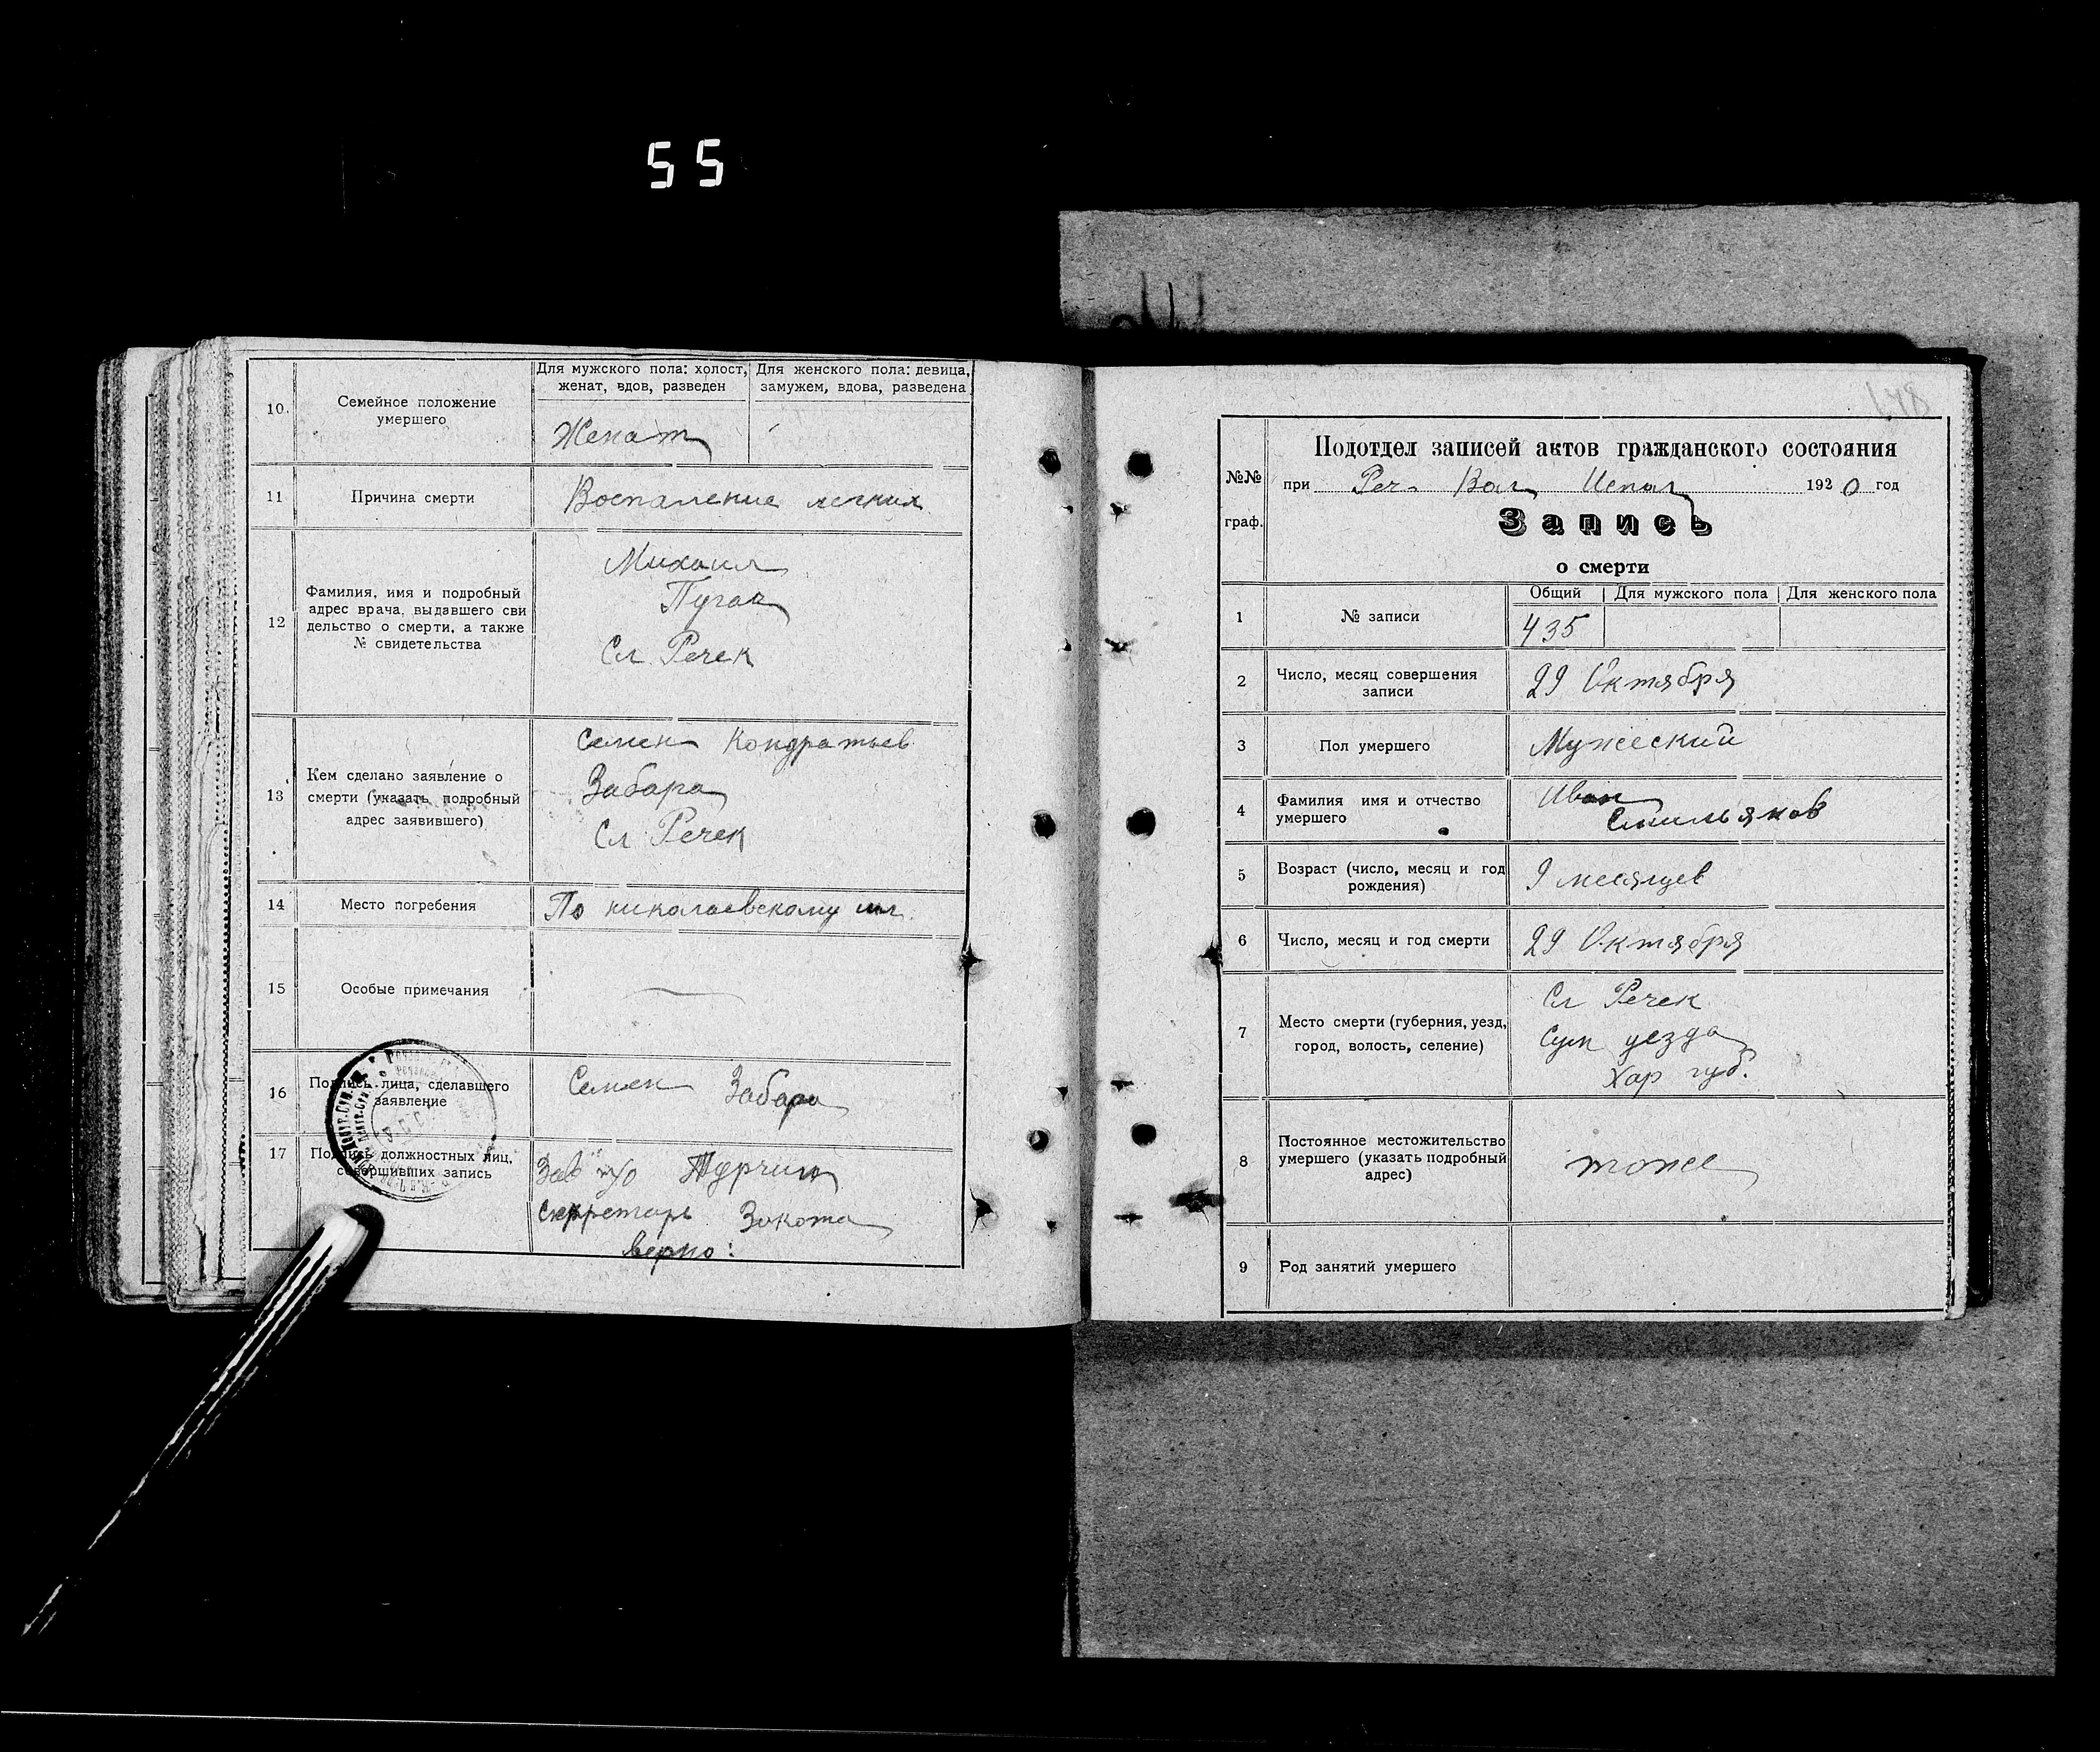 55
10.
Семейное положение
умершего
Для мужского пола: холост,
женат, вдов, разведен
Для женского пола: девица,
замужем, вдова, разведена
Женат
11
Причина смерти
Воспаление легких
12
Фамилия, имя и подробный
адрес врача, выдавшего сви
дельство о смерти, а также
№ свидетельства
Михаил
Пугач
Сл. Речек
13
Кем сделано заявление о
смерти (указать подробный
адрес заявившего)
Семен Кондратьев
Забара
Сл Речек
14
Место погребения
По николаевскому
15
Особые примечания
16
Подпись лица, сделавшего
заявление
Семен Забара
17
Подпись должностных лиц,
совершивших запись
Зав Турчин
Секретарь Зокота
верно:
178
№№
граф.
Подотдел записей актов гражданского состояния
при Реч. Вол Испол 1920 год
Запись
о смерти
Общий
Для мужского пола
Для женского пола
1
№ записи
435
2
Число, месяц совершения
записи
29 Октября
3
Пол умершего
Мужеский
4
Фамилия имя и отчество
умершего
Иван
5
Возраст (число, месяц и год
рождения)
9 месяцев
6
Число, месяц и год смерти
29 Октября
7
Место смерти (губерния, уезд,
город, волость, селение)
Сл Речек
Сум уезда
Хар губ.
8
Постоянное местожительство
умершего (указать подробный
адрес)
тоже
9
Род занятий умершего